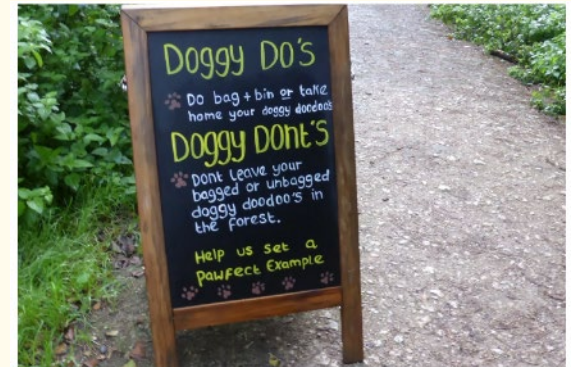 Doggy DO'S
Do bag + bin or take
home your doggy doodoo's
DOGGY DONt'S
Dont leave your
bagged or unbagged
doggy doodoo's in
the forest.
Help us set a
Pawfect Example